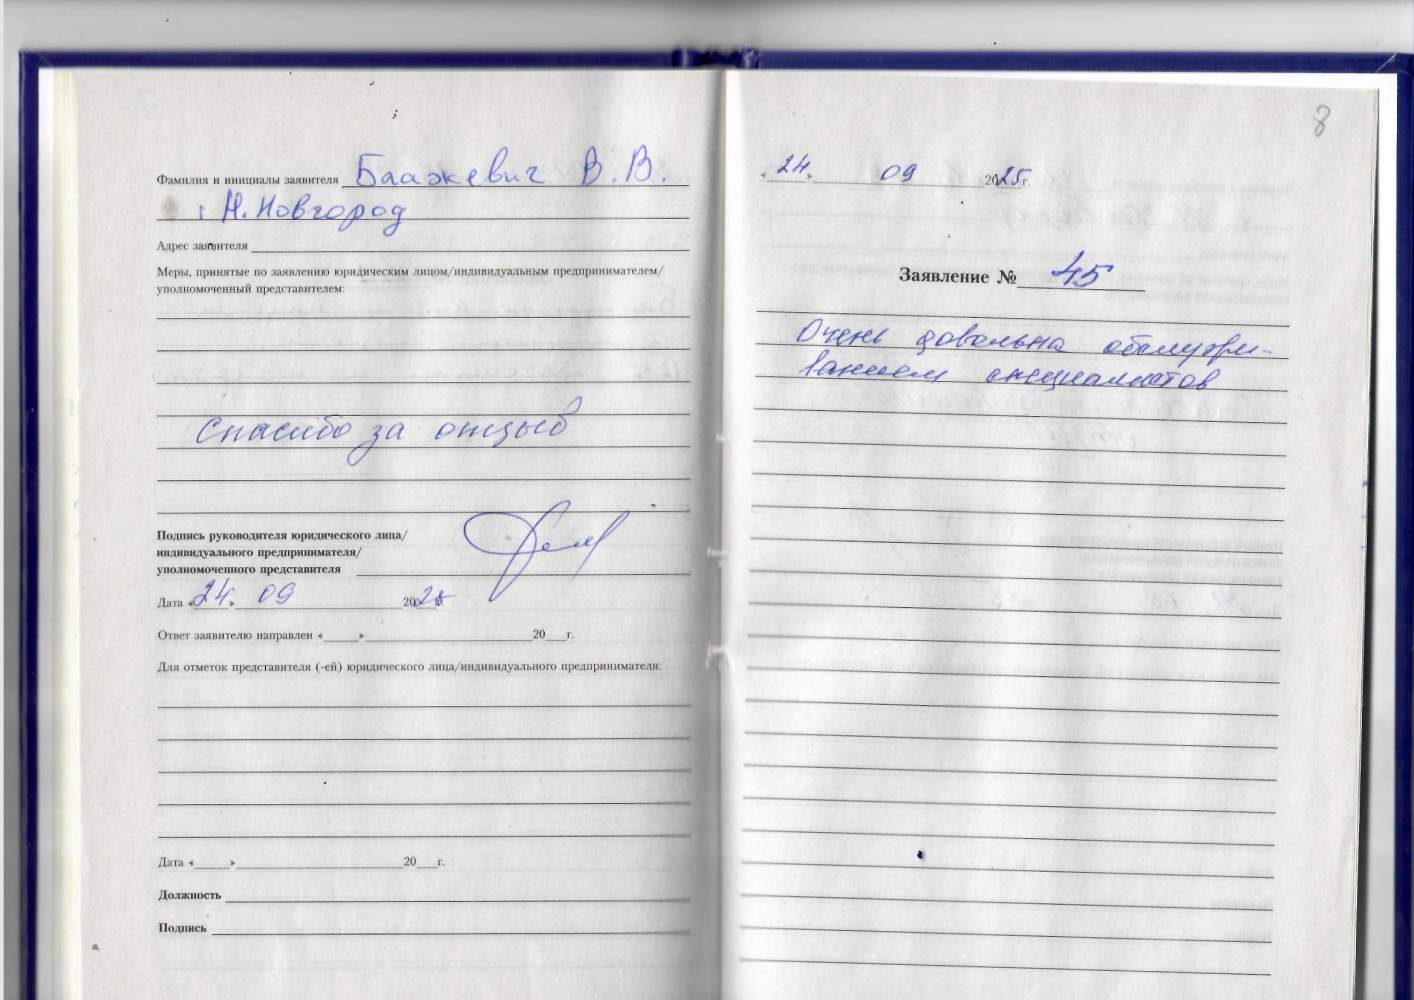 Фамилия и инициалы заявителя Баажевич В.В.
г Н.Новгород
Адрес заявителя
Меры, принятые по заявлению юридическим лицом/индивидуальным предпринимателем/
уполномоченный представителем:
Спасибо за отзыв
Подпись руководителя юридического лица/
индивидуального предпринимателя/
уполномоченного представителя
Дата «24» 09 2025
Ответ заявителю направлен «____»____20__г.
Для отметок представителя (-ей) юридического лица/индивидуального предпринимателя:
Дата «____»____20__г.
Должность
Подпись
8
«24» 09 2025г.
Заявление № 45
Очень довольна обслужи-
ванием специалистов